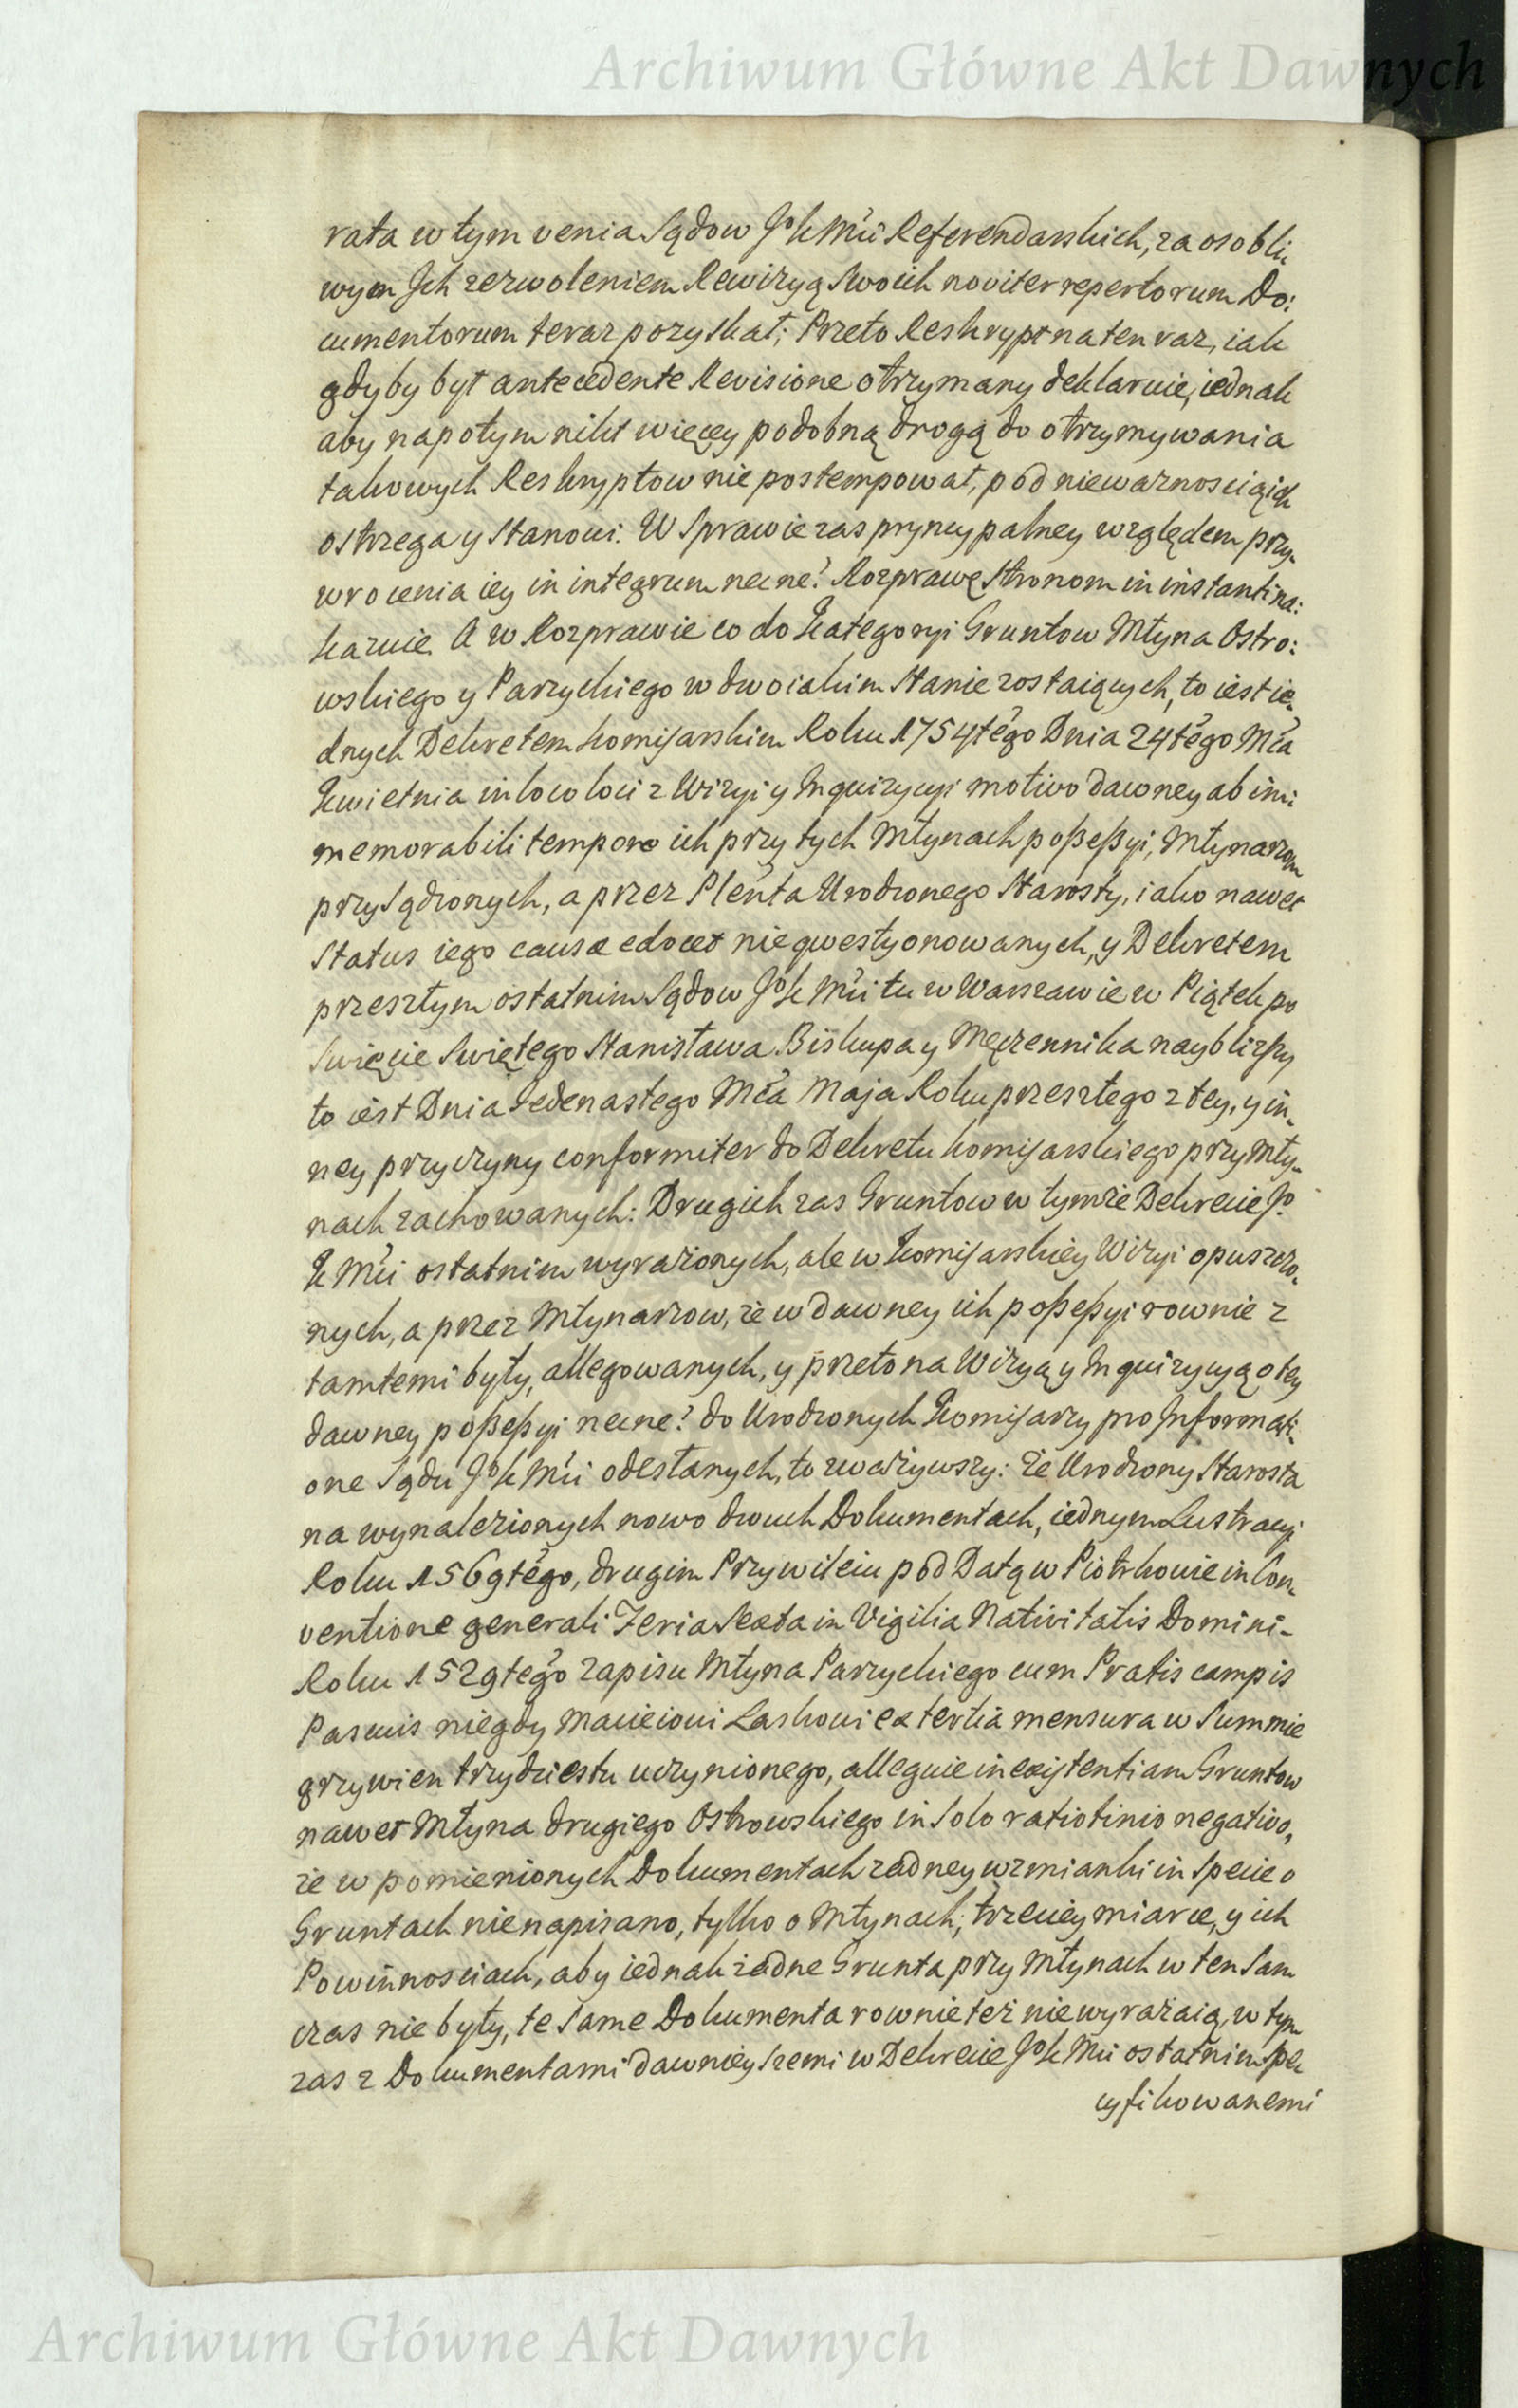 Archiwum Główne Akt Dawnych
rata w tym venia Sądow JoKMci Referendarskich, za osobli
wym Jch zezwoleniem Rewizyą Swoich noviter repertorum Do:
cumentorum teraz pozyskał; Przeto Reskrypt na ten raz, iak
gdyby był antecedente Revisione otrzymany deklaruie, iednak
aby napotym nikt więcey podobną drogą do otrzymywania
takowych Reskryptow nie postempował, pod niewaznoscią ich
ostrzega y stanowi. W Sprawie zas pryncypalney względem przy-
wrocenia iey in integrum necne? Rozprawę Stronom in instanti na:
kazuie. A w Rozprawie co do Kategoryi Gruntow Młyna Ostro:
wskiego y Parzyckiego w dwoiakim Stanie zostaiących, to iest ie-
dnych Dekretem Komisarskim Roku 1754tego Dnia 24tego Mca
Kwietnia in loco loci z Wizyi y Inquizycyi motivo dawney ab imi
memorabili tempore ich przy tych Młynach poßeßyi, Młynarzom
przysądzonych, a przez Plenta Urodzonego Starosty, iako nawet
Status iego causæ edocet nie qwestyonowanych, y Dekretem
przeszłym ostatnim Sądow JoKMci tu w Warszawie w Piątek po
Swięcie Swiętego Stanisława Biskupa y Męczennika nayblizszy
to iest Dnia Jedenastego Mca Maja Roku przeszłego z tey, y in-
ney przyczyny conformiter do Dekretu Komisarskiego przy Mły-
nach zachowanych: Drugich zas Gruntow w tymże Dekrecie Jo
KMci ostatnim wyrażonych, ale w Komisarskiey Wizyi opuszczo-
nych, a przez Młynarzow, że w dawney ich poßeßyi rownie z
tamtemi były, allegowanych, y przeto na Wizyą y Inquizycyą o tey
dawney poßeßyi necne? do Urodzonych Komisarzy pro Informati-
one Sądu JoKMci odesłanych, to zważywszy: że Urodzony Starosta
na wynalezionych nowo dwuch Dokumentach, iednym Lustracyi
Roku 1569tego, drugim Przywileiu pod Datą w Piotrkowie in Con-
ventione generali Feria Sexta in Vigilia Nativitatis Domini-
Roku 1529tego zapisu Młyna Parzyckiego cum Pratis campis
Pascuis niegdy Macieiowi Laskowi ex tertia mensura w Summie
grzywien trzydziestu uczynionego, alleguie inexistentiam Gruntow
nawet Młyna drugiego Ostrowskiego in Solo ratiotinio negativo,
że w pomienionych Dokumentach żadney wzmianki in Specie o
Gruntach nie napisano, tylko o Młynach, trzeciey miarce, y ich
Powinnosciach, aby iednak żadne Grunta przy Młynach w ten Sam
czas nie były, te same Dokumenta rownie też nie wyrażaią, w tym
zas z Dokumentami dawnieyszemi w Dekrecie JoKMci ostatnim spe
cyfikowanemi
Archiwum Główne Akt Dawnych